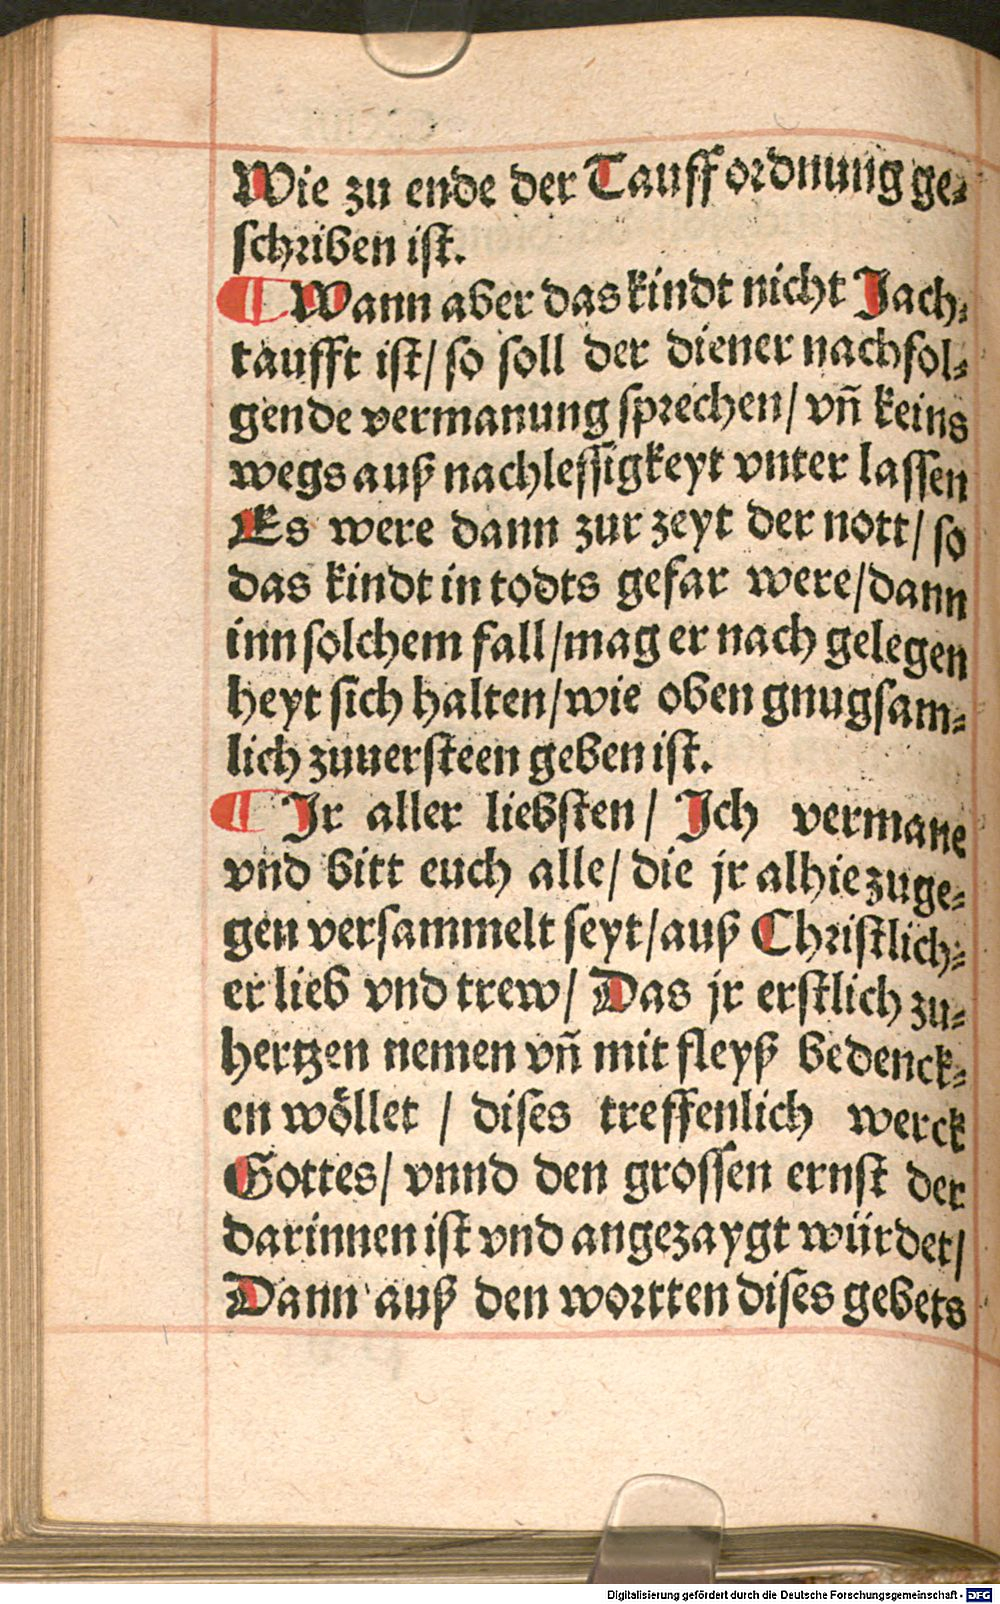 Wie zu ende der Tauff ordnung ge⸗
schriben ist.
¶ Wann aber das kindt nicht Jach⸗
taufft ist/ so soll der diener nachfol⸗
gende vermanung sprechen/ vñ keins
wegs auß nachlessigkeyt vnter lassen
Es were dann zur zeyt der nott/ so
das kindt in todts gefar were/dann
inn solchem fall/mag er nach gelegen
heyt sich halten/wie oben gnugsam⸗
lich zuuersteen geben ist.
¶ Jr aller liebsten/ Jch vermane
vnd bitt euch alle/ die jr alhie zuge⸗
gen versammelt seyt/auß Christlich⸗
er lieb vnd trew/ Das jr erstlich zu⸗
hertzen nemen vñ mit fleyß bedenck⸗
en wöllet / dises treffenlich werck
Gottes/ vnnd den grossen ernst der
darinnen ist vnd angezaygt würdet/
Dann auß den wortten dises gebets
Digitalisierung gefördert durch die Deutsche Forschungsgemeinschaft - DFG